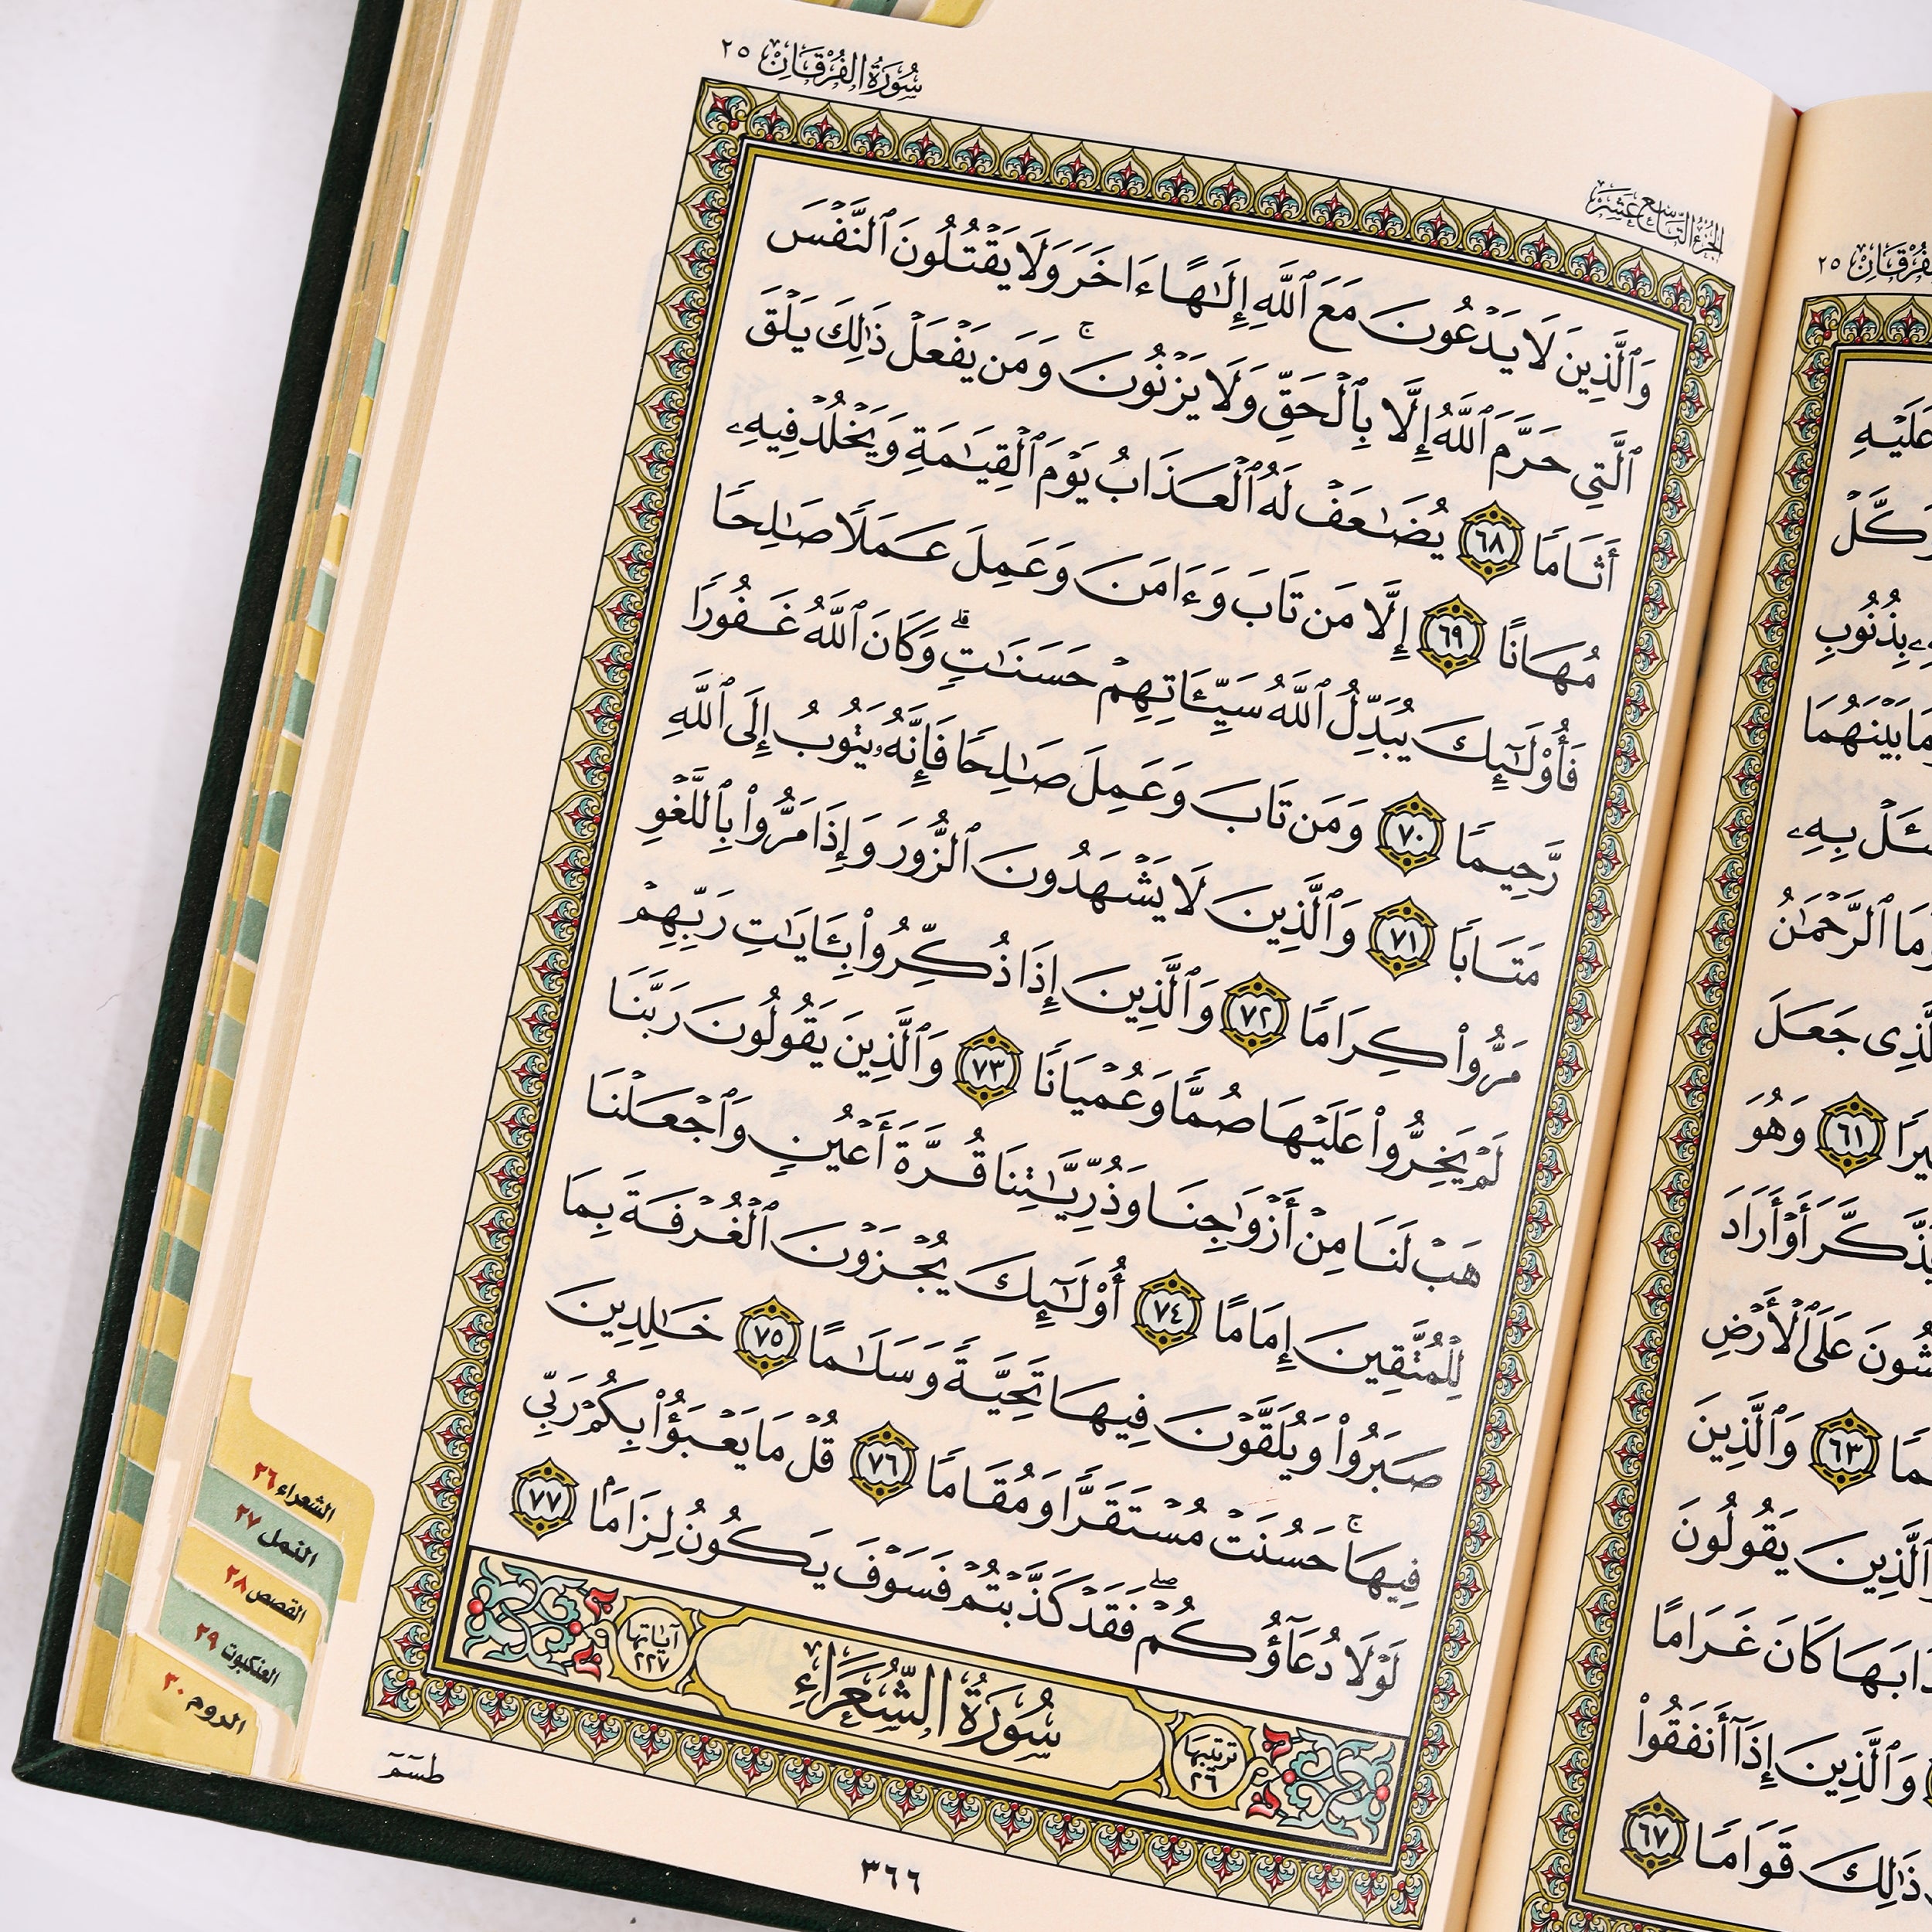 سُورَةُ الفُرْقَانِ ٢٥
الجُزْءُ التَّاسِعَ عَشَرَ
وَٱلَّذِينَ لَا يَدْعُونَ مَعَ ٱللَّهِ إِلَٰهًا ءَاخَرَ وَلَا يَقْتُلُونَ ٱلنَّفْسَ
ٱلَّتِي حَرَّمَ ٱللَّهُ إِلَّا بِٱلْحَقِّ وَلَا يَزْنُونَ ۚ وَمَن يَفْعَلْ ذَٰلِكَ يَلْقَ
أَثَامًا ٦٨ يُضَٰعَفْ لَهُ ٱلْعَذَابُ يَوْمَ ٱلْقِيَٰمَةِ وَيَخْلُدْ فِيهِۦ
مُهَانًا ٦٩ إِلَّا مَن تَابَ وَءَامَنَ وَعَمِلَ عَمَلًا صَٰلِحًا
فَأُو۟لَٰٓئِكَ يُبَدِّلُ ٱللَّهُ سَيِّـَٔاتِهِمْ حَسَنَٰتٍ ۗ وَكَانَ ٱللَّهُ غَفُورًا
رَّحِيمًا ٧٠ وَمَن تَابَ وَعَمِلَ صَٰلِحًا فَإِنَّهُۥ يَتُوبُ إِلَى ٱللَّهِ
مَتَابًا ٧١ وَٱلَّذِينَ لَا يَشْهَدُونَ ٱلزُّورَ وَإِذَا مَرُّوا۟ بِٱللَّغْوِ
مَرُّوا۟ كِرَامًا ٧٢ وَٱلَّذِينَ إِذَا ذُكِّرُوا۟ بِـَٔايَٰتِ رَبِّهِمْ
لَمْ يَخِرُّوا۟ عَلَيْهَا صُمًّا وَعُمْيَانًا ٧٣ وَٱلَّذِينَ يَقُولُونَ رَبَّنَا
هَبْ لَنَا مِنْ أَزْوَٰجِنَا وَذُرِّيَّٰتِنَا قُرَّةَ أَعْيُنٍ وَٱجْعَلْنَا
لِلْمُتَّقِينَ إِمَامًا ٧٤ أُو۟لَٰٓئِكَ يُجْزَوْنَ ٱلْغُرْفَةَ بِمَا
صَبَرُوا۟ وَيُلَقَّوْنَ فِيهَا تَحِيَّةً وَسَلَٰمًا ٧٥ خَٰلِدِينَ
فِيهَا ۚ حَسُنَتْ مُسْتَقَرًّا وَمُقَامًا ٧٦ قُلْ مَا يَعْبَؤُا۟ بِكُمْ رَبِّي
لَوْلَا دُعَآؤُكُمْ ۖ فَقَدْ كَذَّبْتُمْ فَسَوْفَ يَكُونُ لِزَامًۢا ٧٧
ترتيبها ٢٦
سُورَةُ الشُّعَرَاءِ
آياتها ٢٢٧
طسٓمٓ
٣٦٦
الشعراء ٢٦
النمل ٢٧
القصص ٢٨
العنكبوت ٢٩
الروم ٣٠
٢٥
بِذُنُوبِ
بَيْنَهُمَا
بِهِۦ
ٱلرَّحْمَٰنُ
جَعَلَ
٦١ وَهُوَ
أَوْ أَرَادَ
عَلَى ٱلْأَرْضِ
٦٣ وَٱلَّذِينَ
يَقُولُونَ
كَانَ غَرَامًا
وَٱلَّذِينَ إِذَآ أَنفَقُوا۟
ذَٰلِكَ قَوَامًا ٦٧